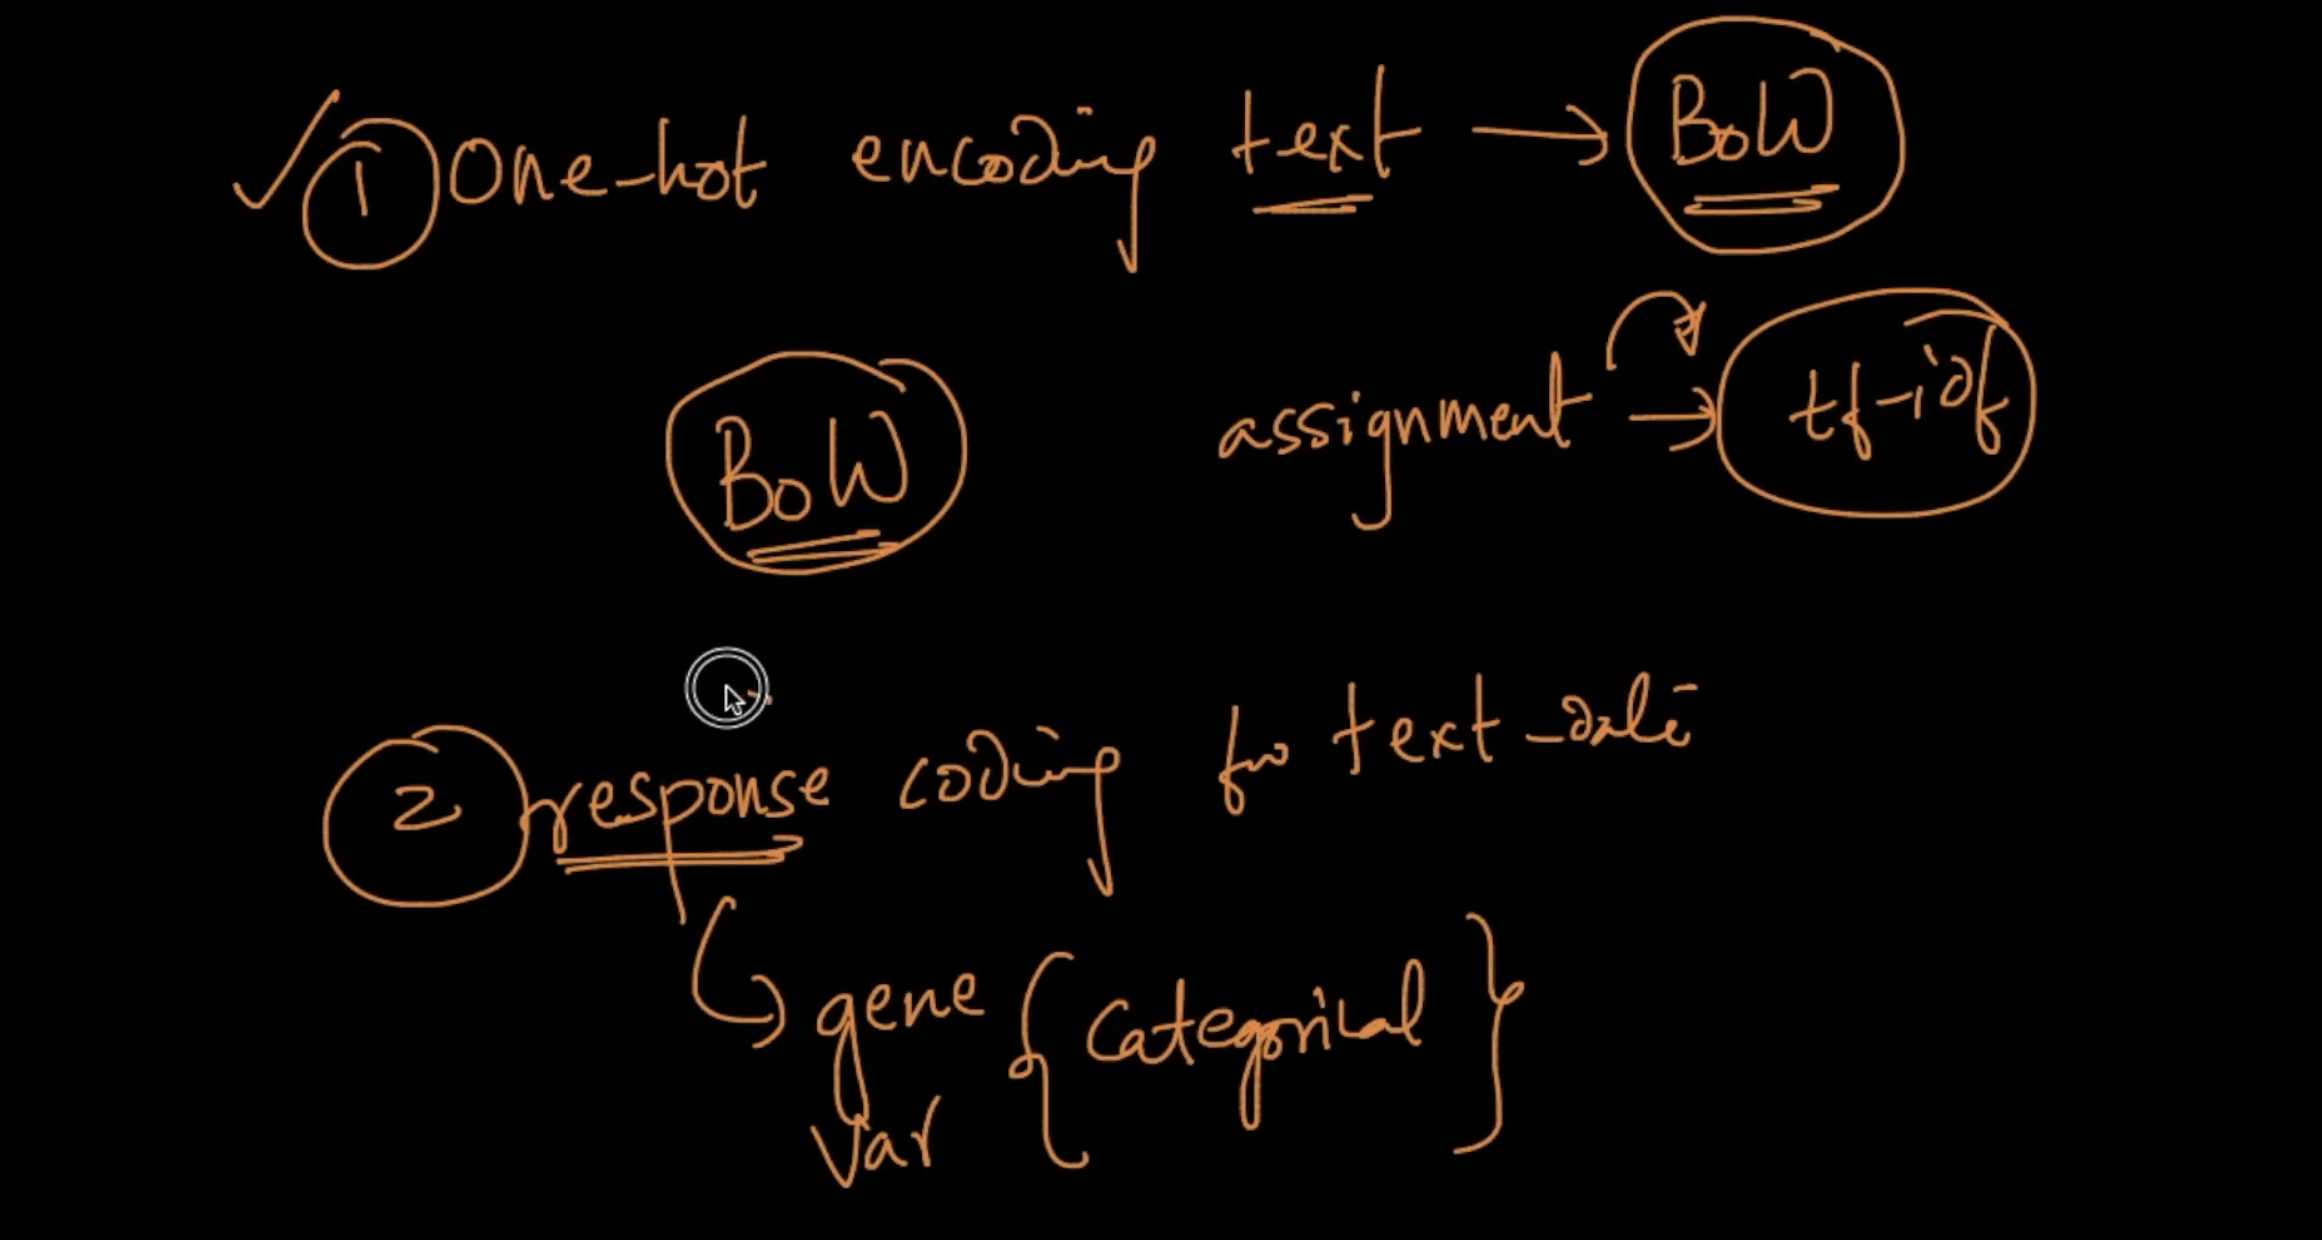 1 One-hot encoding text → BoW
assignment → tf-idf
BoW
2 response coding for text-data
gene { Categorical }
var